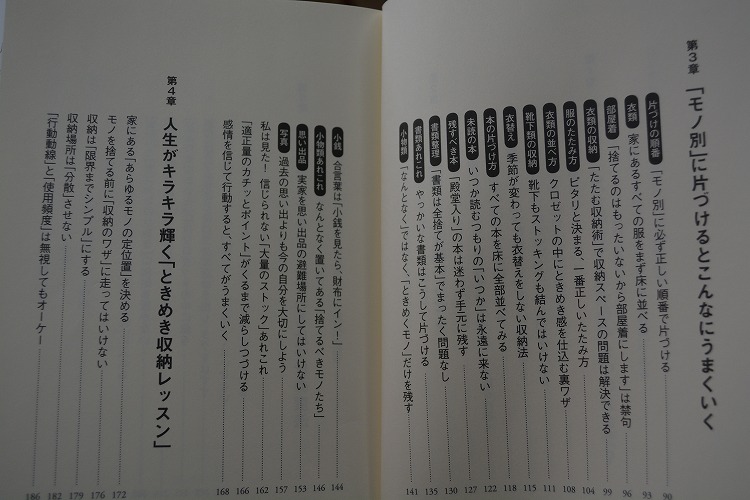 第3章 「モノ別」に片づけるとこんなにうまくいく
片づけの順番 「モノ別」に必ず正しい順番で片づける 90
衣類 家にあるすべての服をまず床に並べる 93
部屋着 「捨てるのはもったいないから部屋着にします」は禁句 96
衣類の収納 「たたむ収納術」で収納スペースの問題は解決できる 99
服のたたみ方 ピタリと決まる、一番正しいたたみ方 104
衣類の並べ方 クロゼットの中にときめき感を仕込む裏ワザ 108
靴下類の収納 靴下もストッキングも結んではいけない 111
衣替え 季節が変わっても衣替えをしない収納法 115
本の片づけ方 すべての本を床に全部並べてみる 118
未読の本 いつか読むつもりの「いつか」は永遠に来ない 122
残すべき本 「殿堂入り」の本は迷わず手元に残す 127
書類整理 「書類は全捨てが基本」でまったく問題なし 130
書類あれこれ やっかいな書類はこうして片づける 135
小物類 「なんとなく」ではなく、「ときめくモノ」だけを残す 141
小銭 合言葉は「小銭を見たら、財布にイン!」 144
小物類あれこれ なんとなく置いてある「捨てるべきモノたち」 146
思い出品 実家を思い出品の避難場所にしてはいけない 153
写真 過去の思い出よりも今の自分を大切にしよう 157
私は見た! 信じられない「大量のストック」あれこれ 162
「適正量のカチッとポイント」がくるまで減らしつづける 166
感情を信じて行動すると、すべてがうまくいく 168
第4章 人生がキラキラ輝く「ときめき収納レッスン」
家にある「あらゆるモノの定位置」を決める 172
モノを捨てる前に「収納のワザ」に走ってはいけない 176
収納は「限界までシンプル」にする 179
収納場所は「分散」させない 182
「行動動線」と「使用頻度」は無視してもオーケー 186